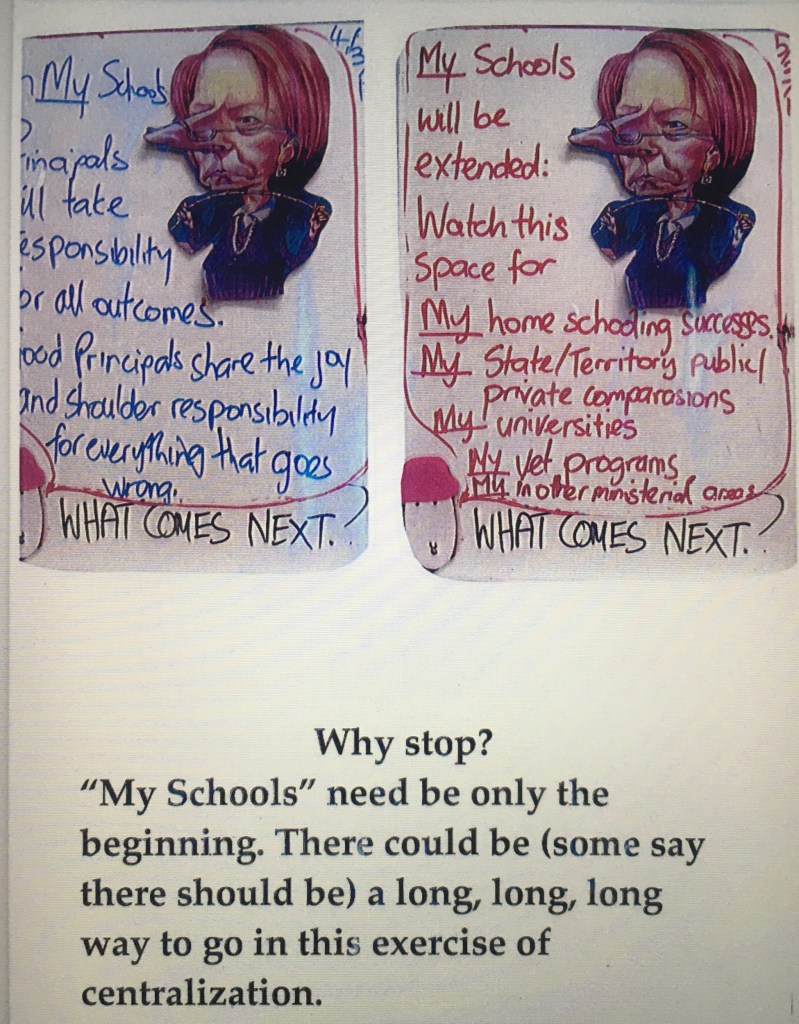 My Schools
will take
responsibility
for all outcomes.
Good Principals share the joy
and shoulder responsibility
for everything that goes
wrong.
WHAT COMES NEXT.?
My Schools
will be
extended:
Watch this
space for
My home schooling successes.
My State/Territory public/
private comparasions
My universities
My vet programs
My in other ministerial areas
WHAT COMES NEXT.?
Why stop?
“My Schools” need be only the
beginning. There could be (some say
there should be) a long, long, long
way to go in this exercise of
centralization.